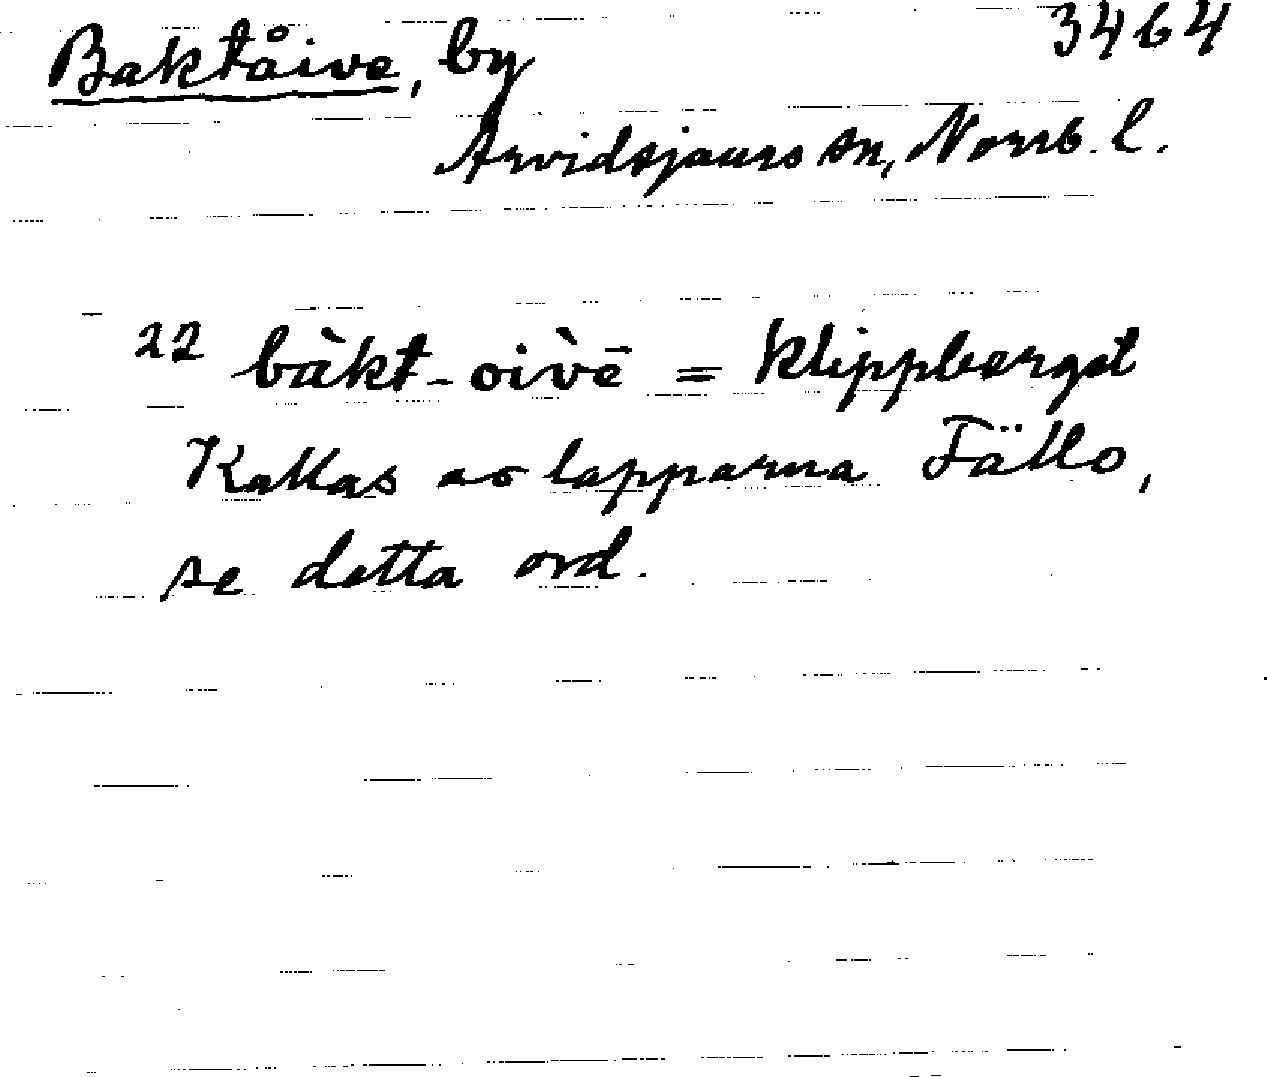 Baktåive, by 3464
Arvidsjaurs sn, Norrb. l.
22 bàkt-oivē = klippberget
Kallas av lapparna Fällo,
se detta ord.